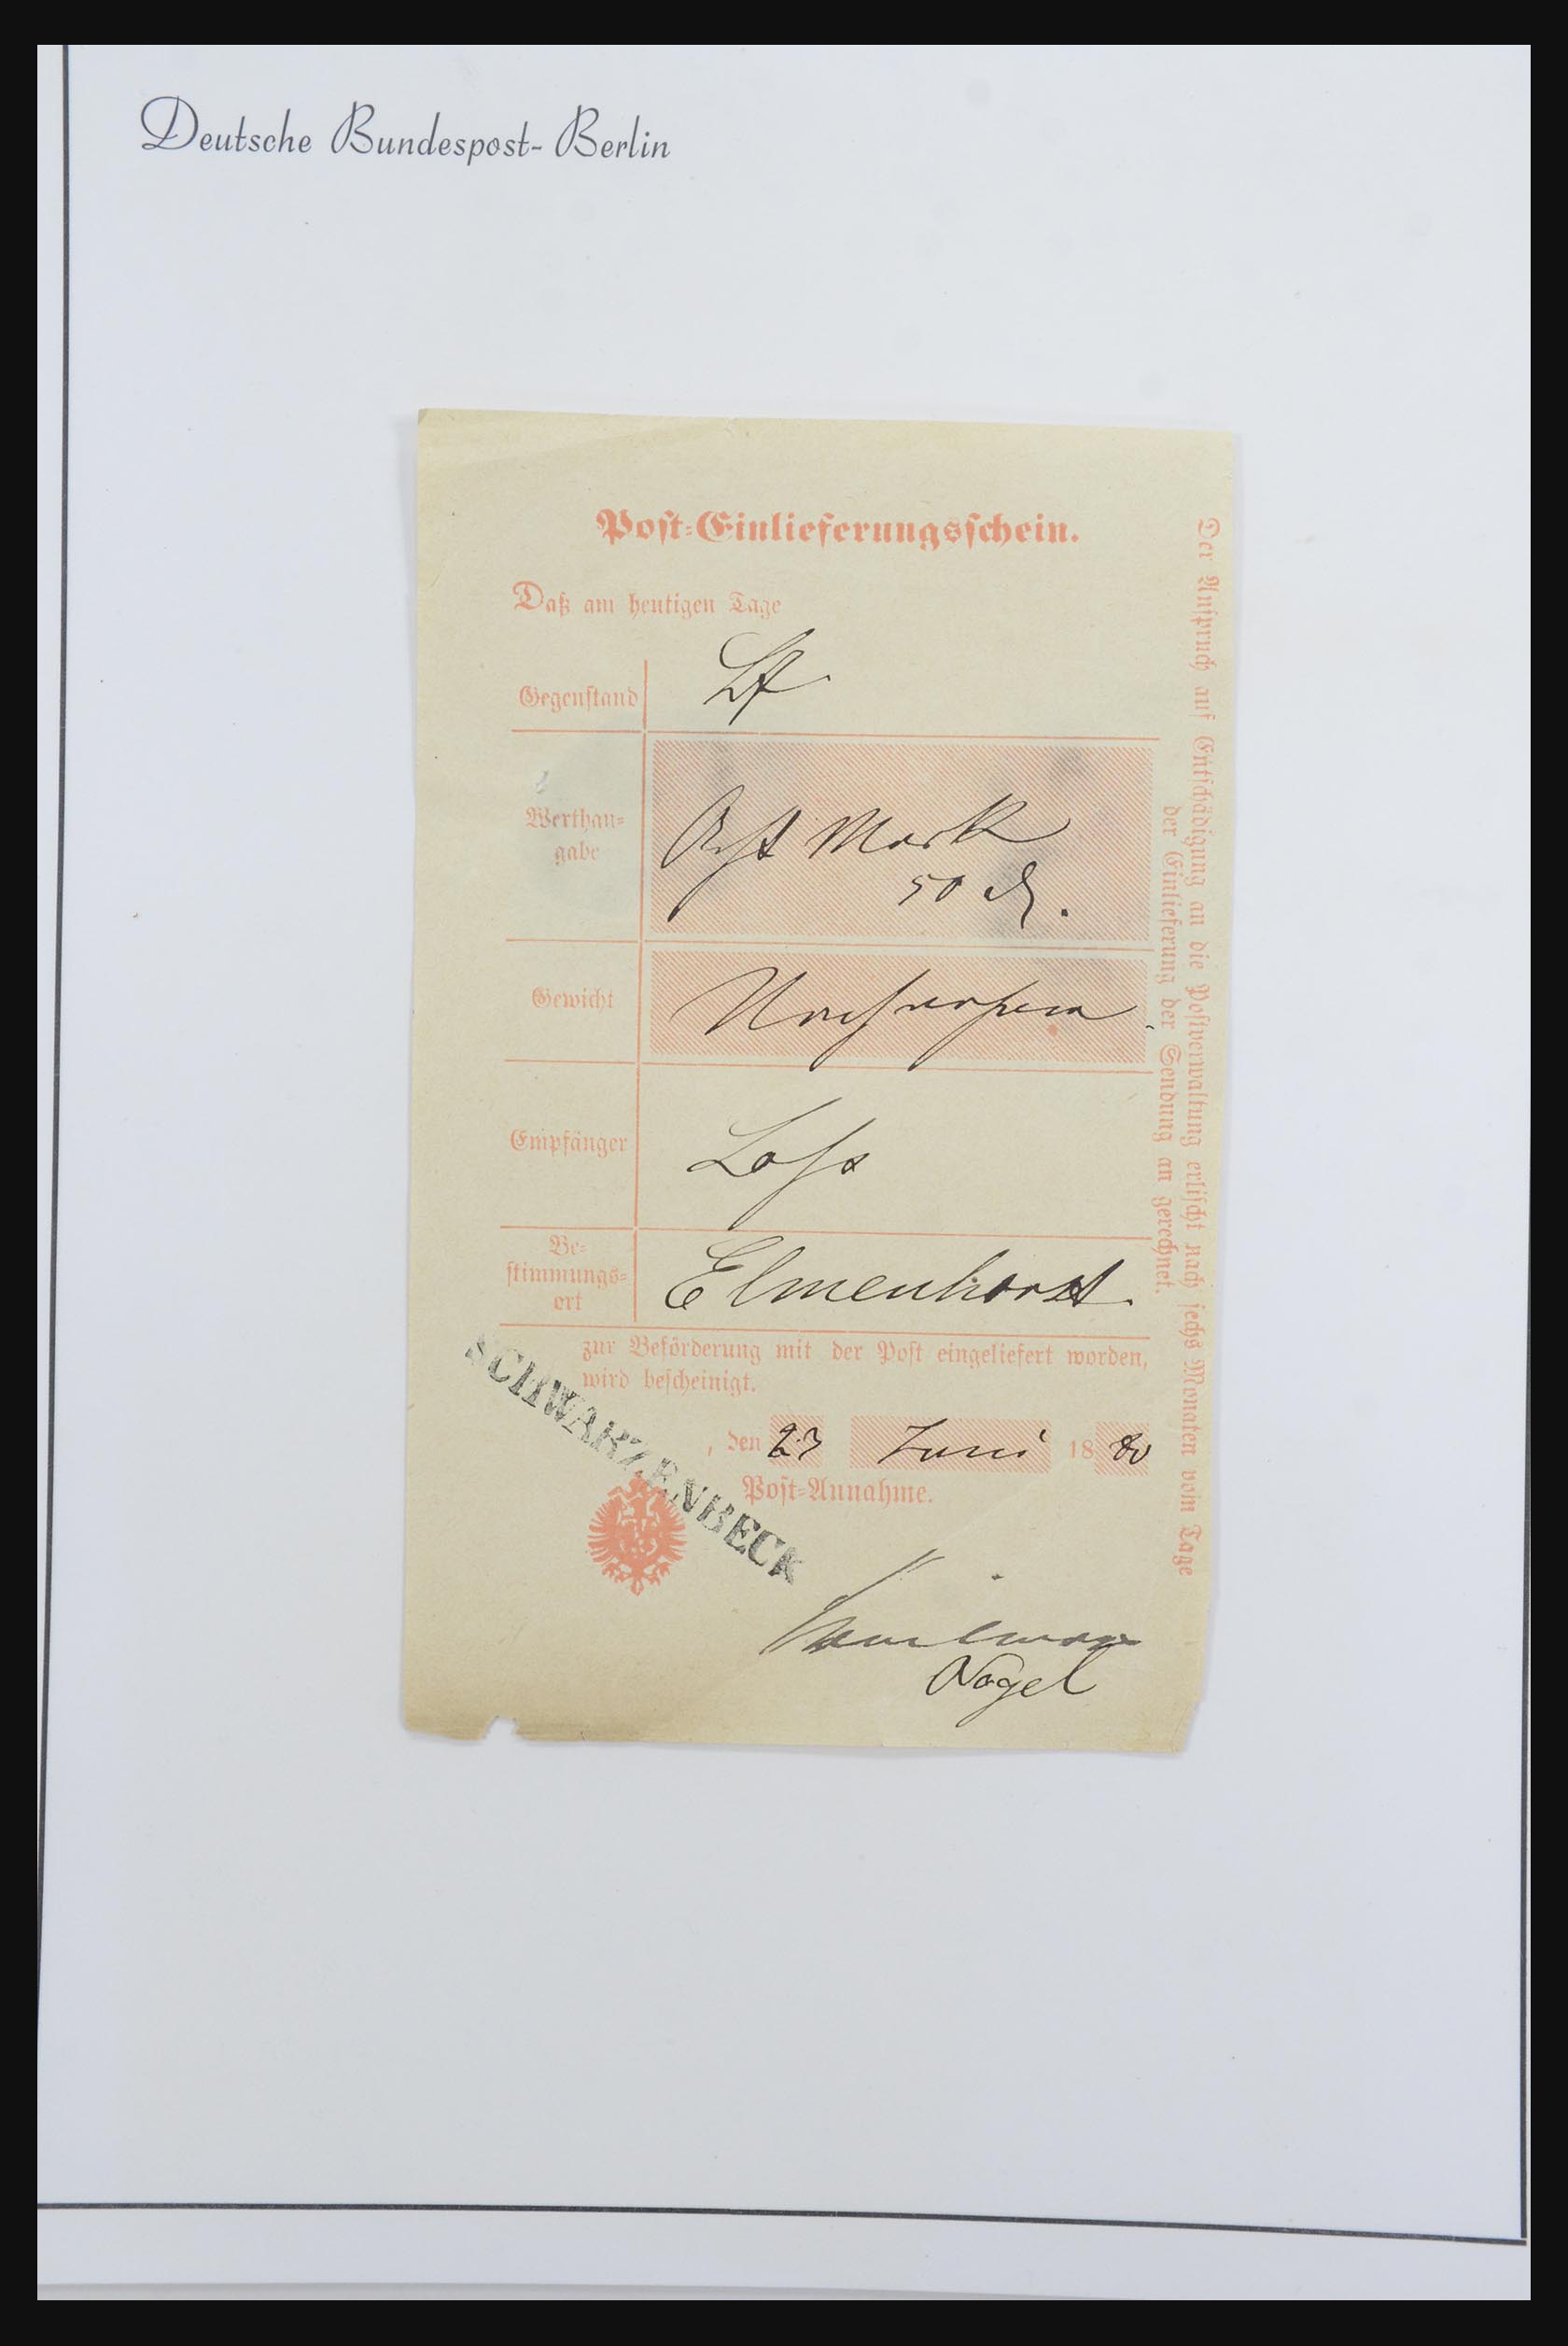 Deutsche Bundespost-Berlin
Post-Einlieferungsschein.
Daß am heutigen Tage
Gegenstand
Werthan-
gabe
Acht Mark
50 d.
Gewicht
Empfänger
Be-
stimmungs-
ort
Elmenhorst.
zur Beförderung mit der Post eingeliefert worden,
wird bescheinigt.
SCHWARZENBECK
, den 23 Juni 1880
Post-Annahme.
Nagel
Der Anspruch auf Entschädigung an die Postverwaltung erlischt nach sechs Monaten vom Tage
der Einlieferung der Sendung an gerechnet.